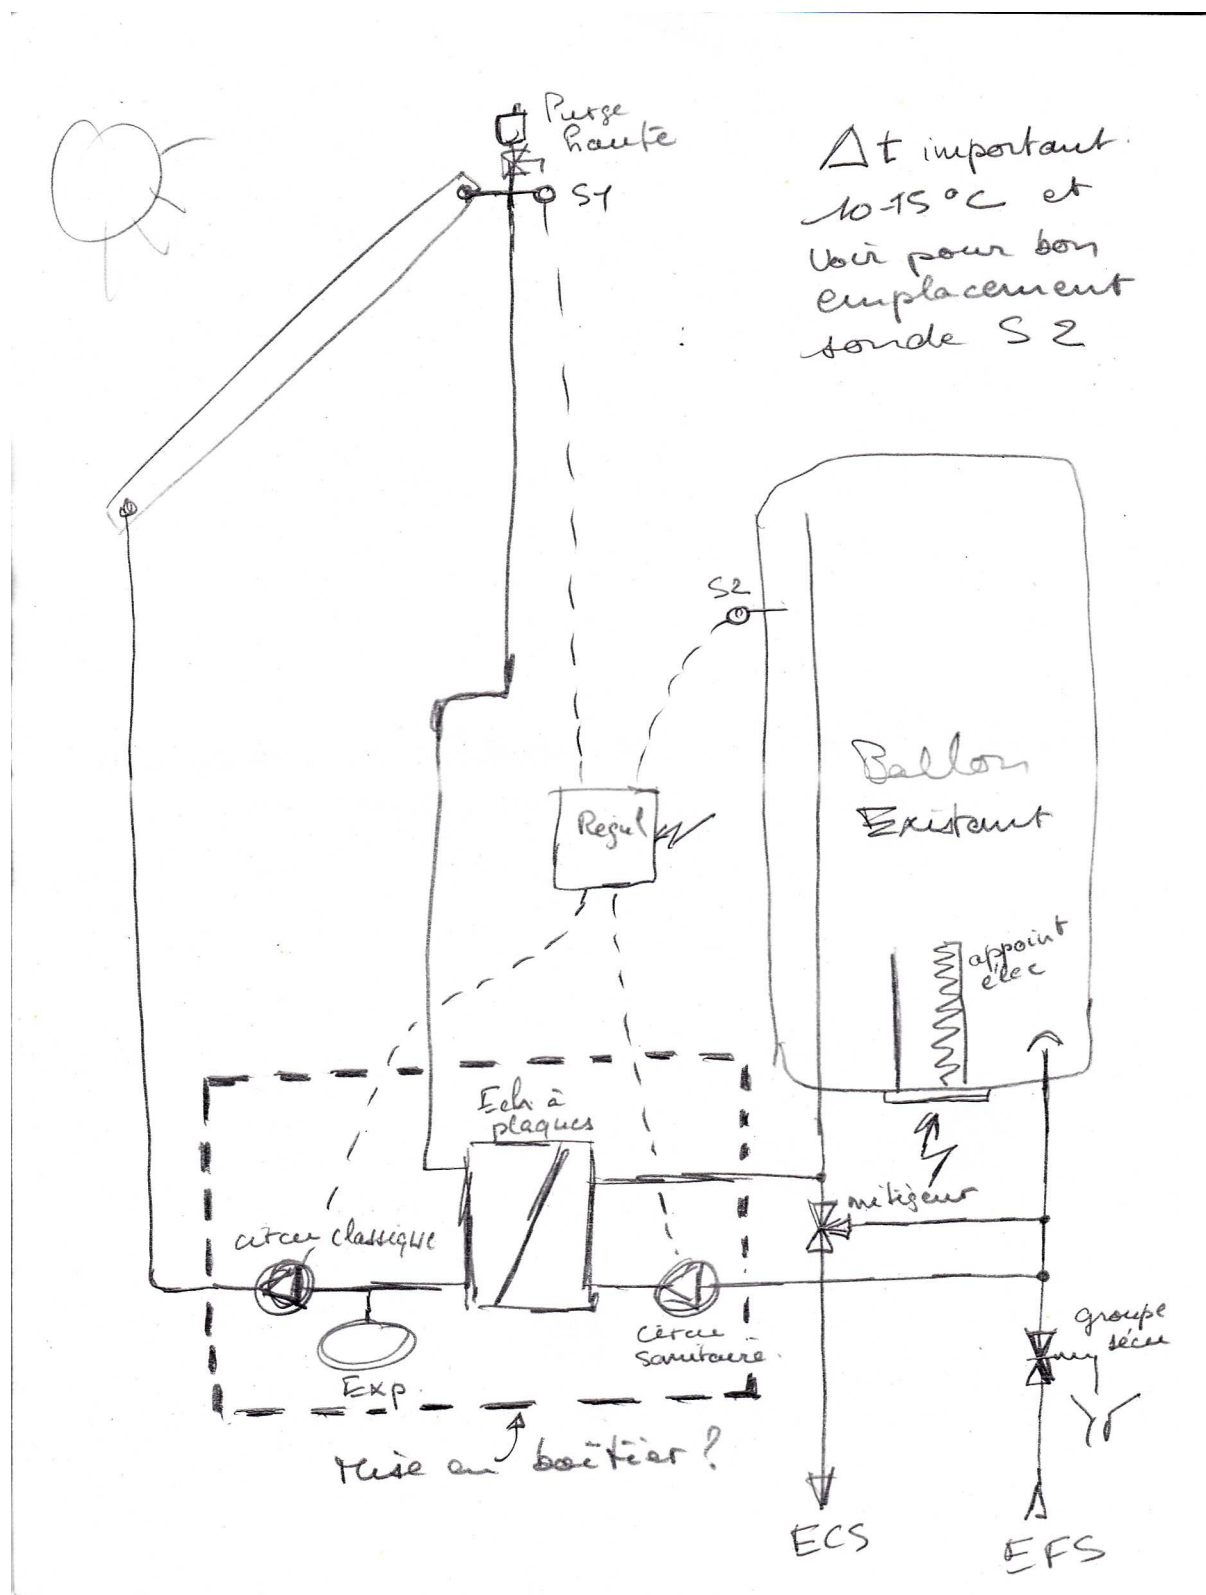 Purge
haute
S1
Δt important.
10-15°C et
Voir pour bon
emplacement
sonde S2
S2
Régul
Ballon
Existant
appoint
élec
Ech à
plaques
mitigeur
circu classique
groupe
sécu
circu
sanitaire.
Exp.
Mise en boîtier ?
ECS
EFS